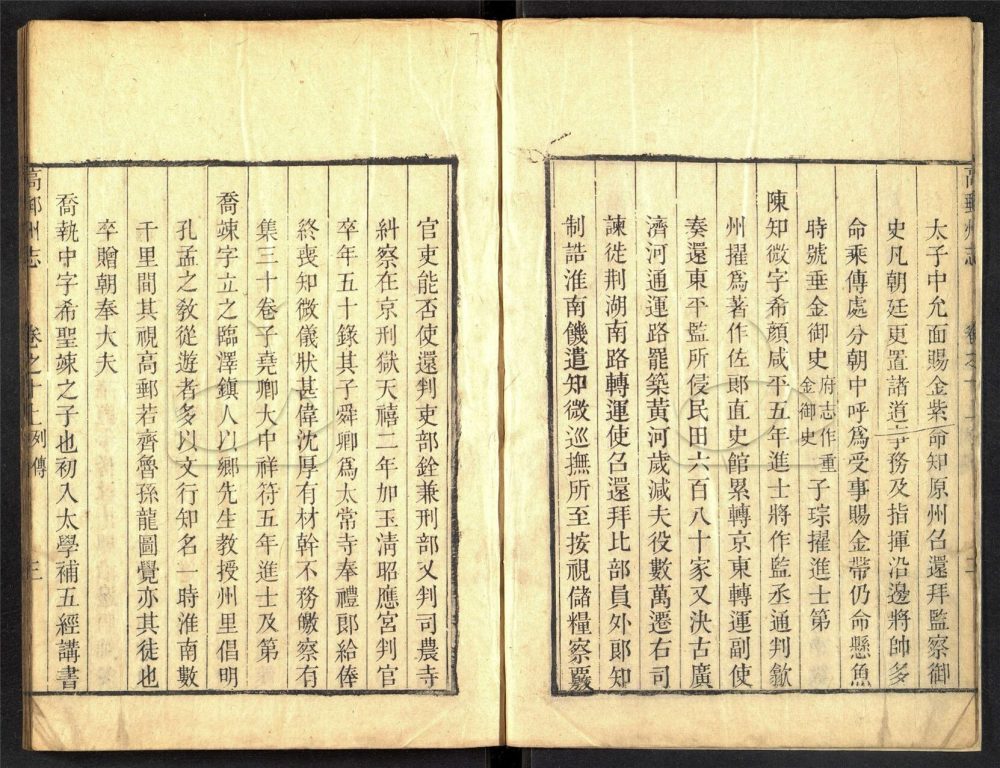 高郵州志
太子中允面賜金紫命知原州召還拜監察御
史凡朝廷更置諸道事務及指揮沿邊將帥多
命乘傳處分朝中呼爲受事賜金帶仍命懸魚
時號垂金御史府志作重金御史子琮擢進士第
陳知微字希顔咸平五年進士將作監丞通判歙
州擢爲著作佐郎直史館累轉京東轉運副使
奏還東平監所侵民田六百八十家又決古廣
濟河通運路罷築黃河歲減夫役數萬遷右司
諫徙荆湖南路轉運使召還拜比部員外郎知
制誥淮南饑遣知微巡撫所至按視儲糧察覈
官吏能否使還判吏部銓兼刑部又判司農寺
糾察在京刑獄天禧二年加玉清昭應宮判官
卒年五十錄其子舜卿爲太常寺奉禮郎給俸
終喪知微儀狀甚偉沈厚有材幹不務皦察有
集三十卷子堯卿大中祥符五年進士及第
喬竦字立之臨澤鎮人以鄉先生教授州里倡明
孔孟之教從遊者多以文行知名一時淮南數
千里間其視高郵若齊魯孫龍圖覺亦其徒也
卒贈朝奉大夫
喬執中字希聖竦之子也初入太學補五經講書
高郵州志 卷之十上 列傳